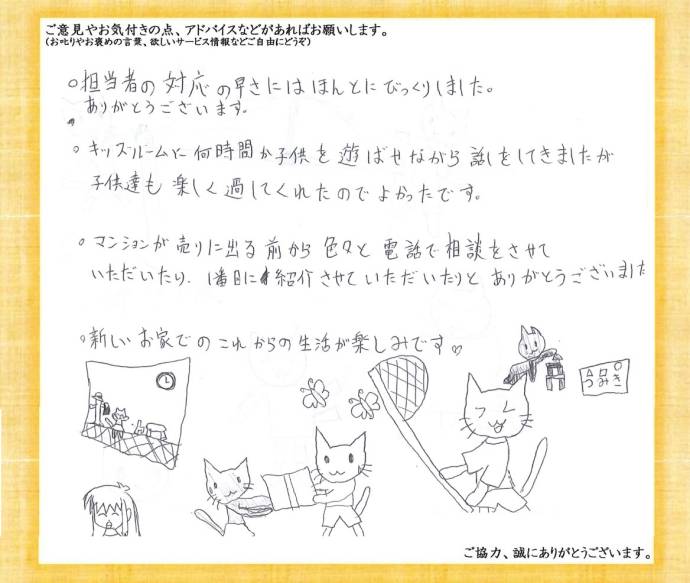 ご意見やお気付きの点、アドバイスなどがあればお願いします。
(お叱りやお褒めの言葉、欲しいサービス情報などご自由にどうぞ)
○担当者の対応の早さにはほんとにびっくりしました。
ありがとうございます。
○キッズルームで何時間か子供を遊ばせながら話しをしてきましたが
子供達も楽しく過してくれたのでよかったです。
○マンションが売りに出る前から色々と電話で相談をさせて
いただいたり、1番目に紹介させていただいたりとありがとうございました
○新しいお家でのこれからの生活が楽しみです♡
つみき
ご協力、誠にありがとうございます。